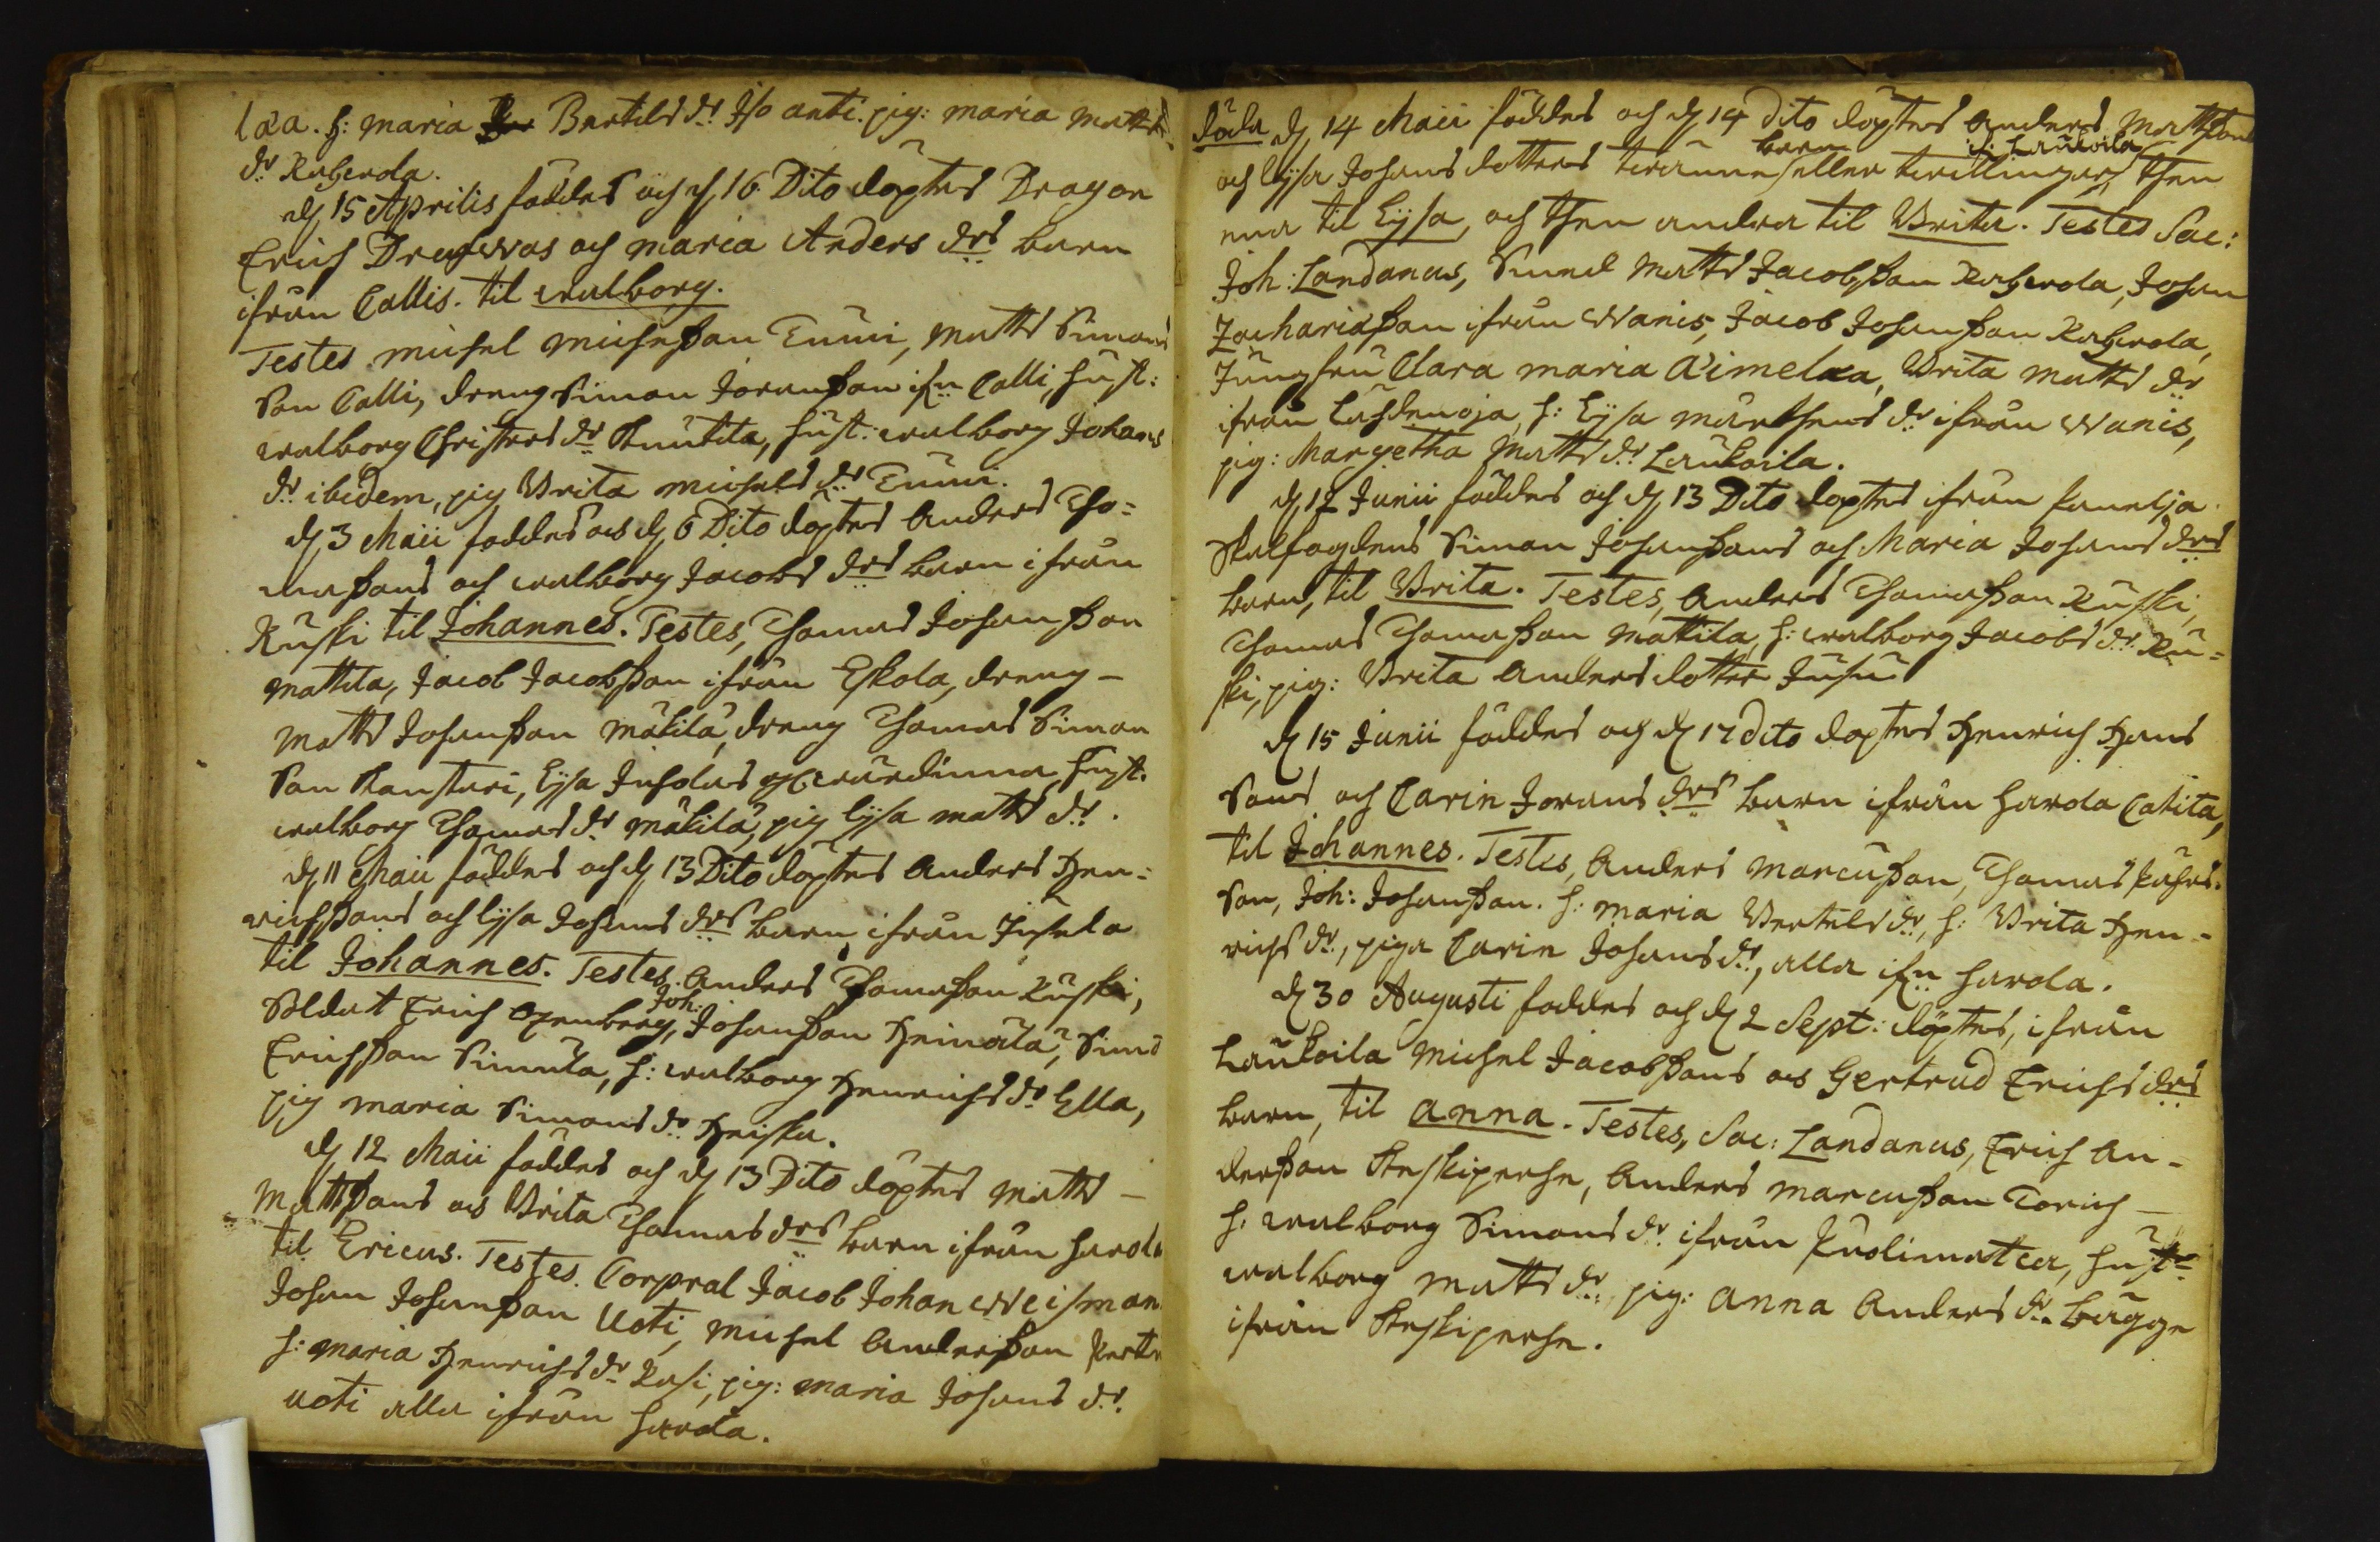 laa. h: Maria Bertils dr Iso anti. pig: Maria Matts
dr Kaherla.
d 15 Aprilis föddes och d 16 Dito döptes Dragon
Erich Dragwas och Maria Anders drs barn
ifrån Callis. til Walborg.
Testes Michel Michelßon Eumi, Matts Simons
Son Calli, dreng Simon Joranßon ifrn Calli, hust:
Walborg Christers dr Knutila, hust: Walborg Johans
dr ibidem, pig Brita Michels dr Eumi.
d 3 Maii föddes och d 6 Dito döptes Anders Tho=
maßons och Walborg Jacobs drs barn ifrån
Kuski til Johannes. Testes, Thomas Johanßon
Mattila, Jacob Jacobßon ifrån Eskola, dreng -
Matts Johanßon Mäkilä, dreng Thomas Simon
Son Kansturi, Lysa Juholas wärdinna, hust.
Walborg Thomas dr Mäkilä, pig Lysa Matts dr.
d 11 Maii föddes och d 13 Dito döptes Anders Hen=
richßons och Lysa Johans drs barn ifrån Juhola
til Johannes. Testes. Anders Thomaßon Kuski,
Joh:
Soldat Erich Openberg, Johanßon Heinälä, Simo
Erichßon Simula, h: Walborg Henrichs dr Ella,
pig Maria Simons dr Heiska.
d 12 Maii föddes och d 13 Dito döptes Matts -
Mattßons och Brita Thomas drs barn ifrån Harola
til Ericus. Testes. Corpral Jacob Johan Weisman
Johan Johanßon Uoti, Michel Anderßon Pertt
h: Maria Henrichs dr Kasi, pig: Maria Johans dr.
Uoti alla ifrån Harola.
döda d 14 Maii föddes och d 14 Dito döptes Anders Mattßons
barn if: Laukoila
och Lysa Johans dotters twänne eller twillingar, then
ena til Lysa, och then andra til Brita. Testes Sac:
Joh: Landanus, Smed Matts Jacobßon Kaherla, Johan
Zachariæßon ifrån Wanis, Jacob Johanßon Kaherla,
Jungfru Clara Maria Aimelæa, Brita Matts dr
ifrån Lähdenoja, h: Lysa Mårthens dr ifrån Wanis,
pig: Margetha Matts dr Laukoila.
d 12 Junii föddes och d 13 Dito döptes ifrån Panelja
Skalfogdens Simon Johanßons och Maria Johans drs
barn, til Brita. Testes, Anders Thomaßon Kuski,
Thomas Thomaßon Mattila, h: Walborg Jacobs dr Ku=
ski, pig: Brita Anders dotter Jusu
d 15 Junii föddes och d 17 Dito döptes Henrich Hans
Sons och Carin Jorans drs barn ifrån Harola Cakita,
til Johannes. Testes, Anders Marcußon, Thomas
Son, Joh: Johanßon. h: Maria Bertils dr, h: Brita Hen-
richs dr, piga Carin Johans dr, alla ifrn Harola.
d 30 Augusti föddes och d 2 Sept: döptes, ifrån
Laukoila Michel Jacobßons och Gertrud Erichs drs
barn, til Anna. Testes, Sac: Landanus, Erich An-
derßon Keskiperhe, Anders Marcußon Torich -
h: Walborg Simons dr ifrån Puolimatca, hust=
Walborg Matts dr, pig: Anna Anders dr Bagge
ifrån Keskiperhe.